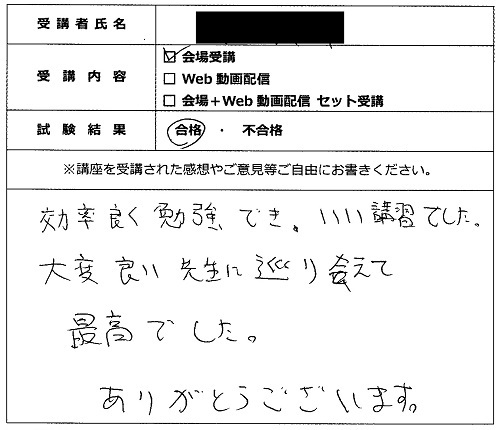 受講者氏名
受講内容
☑ 会場受講
☐ Web 動画配信
☐ 会場＋Web 動画配信 セット受講
試験結果
合格 ・ 不合格
※講座を受講された感想やご意見等ご自由にお書きください。
効率良く勉強でき、いい講習でした。
大変良い先生に巡り会えて
最高でした。
ありがとうございます。